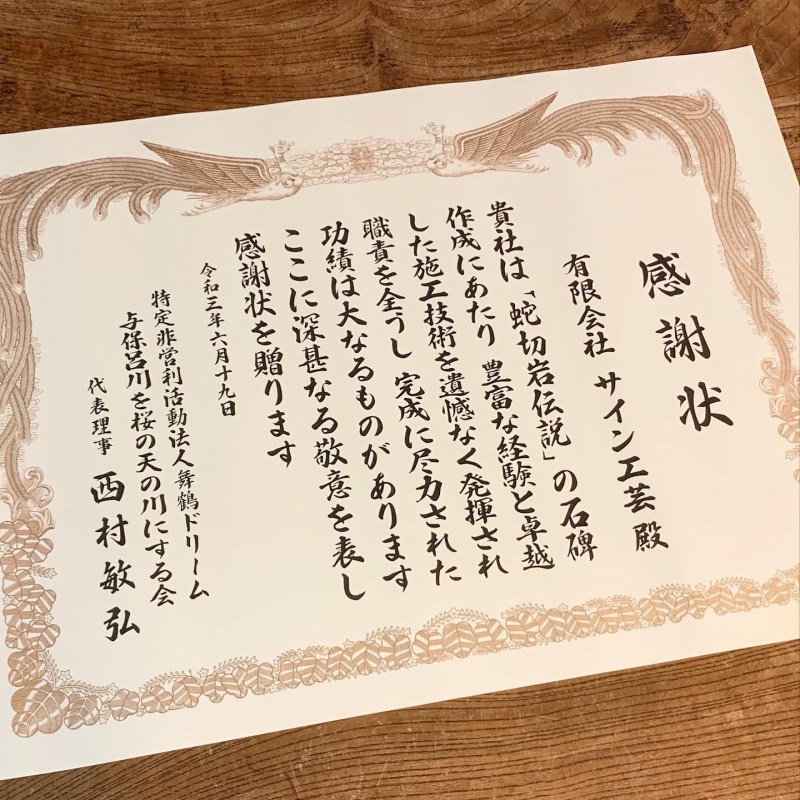 感謝状
有限会社 サイン工芸殿
貴社は「蛇切岩伝説」の石碑
作成にあたり 豊富な経験と卓越
した施工技術を遺憾なく発揮され
職責を全うし 完成に尽力された
功績は大なるものがあります
ここに深甚なる敬意を表し
感謝状を贈ります
令和三年六月十九日
特定非営利活動法人舞鶴ドリーム
与保呂川を桜の天の川にする会
代表理事 西村敏弘